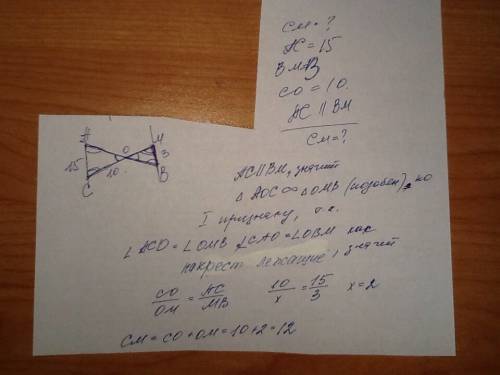 CM = ?
AC = 15
BM = 3
CO = 10.
AC || BM
CM = ?
A M
O
15 10 3
C B
AC || BM, значит
△ AOC ∞ △ OMB (подобен), по
I признаку, т.к.
∠ACO = ∠OMB ∠CAO = ∠OBM как
накрест лежащие, значит
CO/OM = AC/MB 10/x = 15/3 x = 2
CM = CO + OM = 10 + 2 = 12